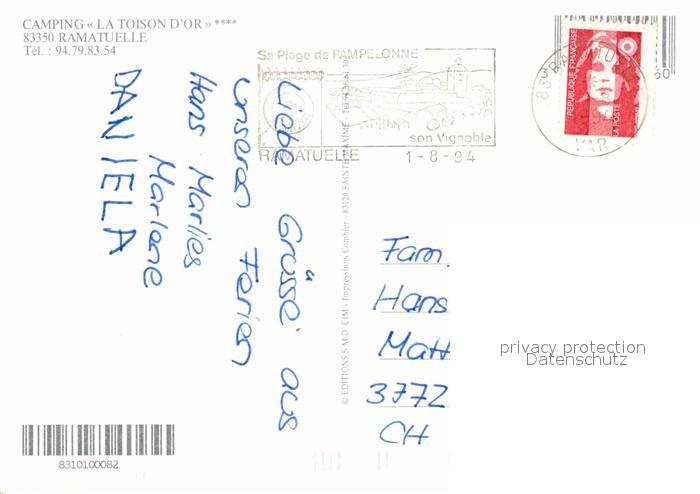 CAMPING « LA TOISON D'OR » ****
83350 RAMATUELLE
Tél. : 94.79.83.54
Sa Plage de PAMPELONNE
son Vignoble
RAMATUELLE 1-8-94
RÉPUBLIQUE FRANÇAISE
LA POSTE
VAR
60
Liebe Grüsse aus
unseren Ferien
Hans Marlies
Marlene
DANIELA
© EDITIONS S.M.D. CIM - Impressions Combier - 83120 SAINTE MAXIME - Tél. 94.96.61.30
Fam.
Hans
Matt
3772
CH
privacy protection
Datenschutz
8310100082